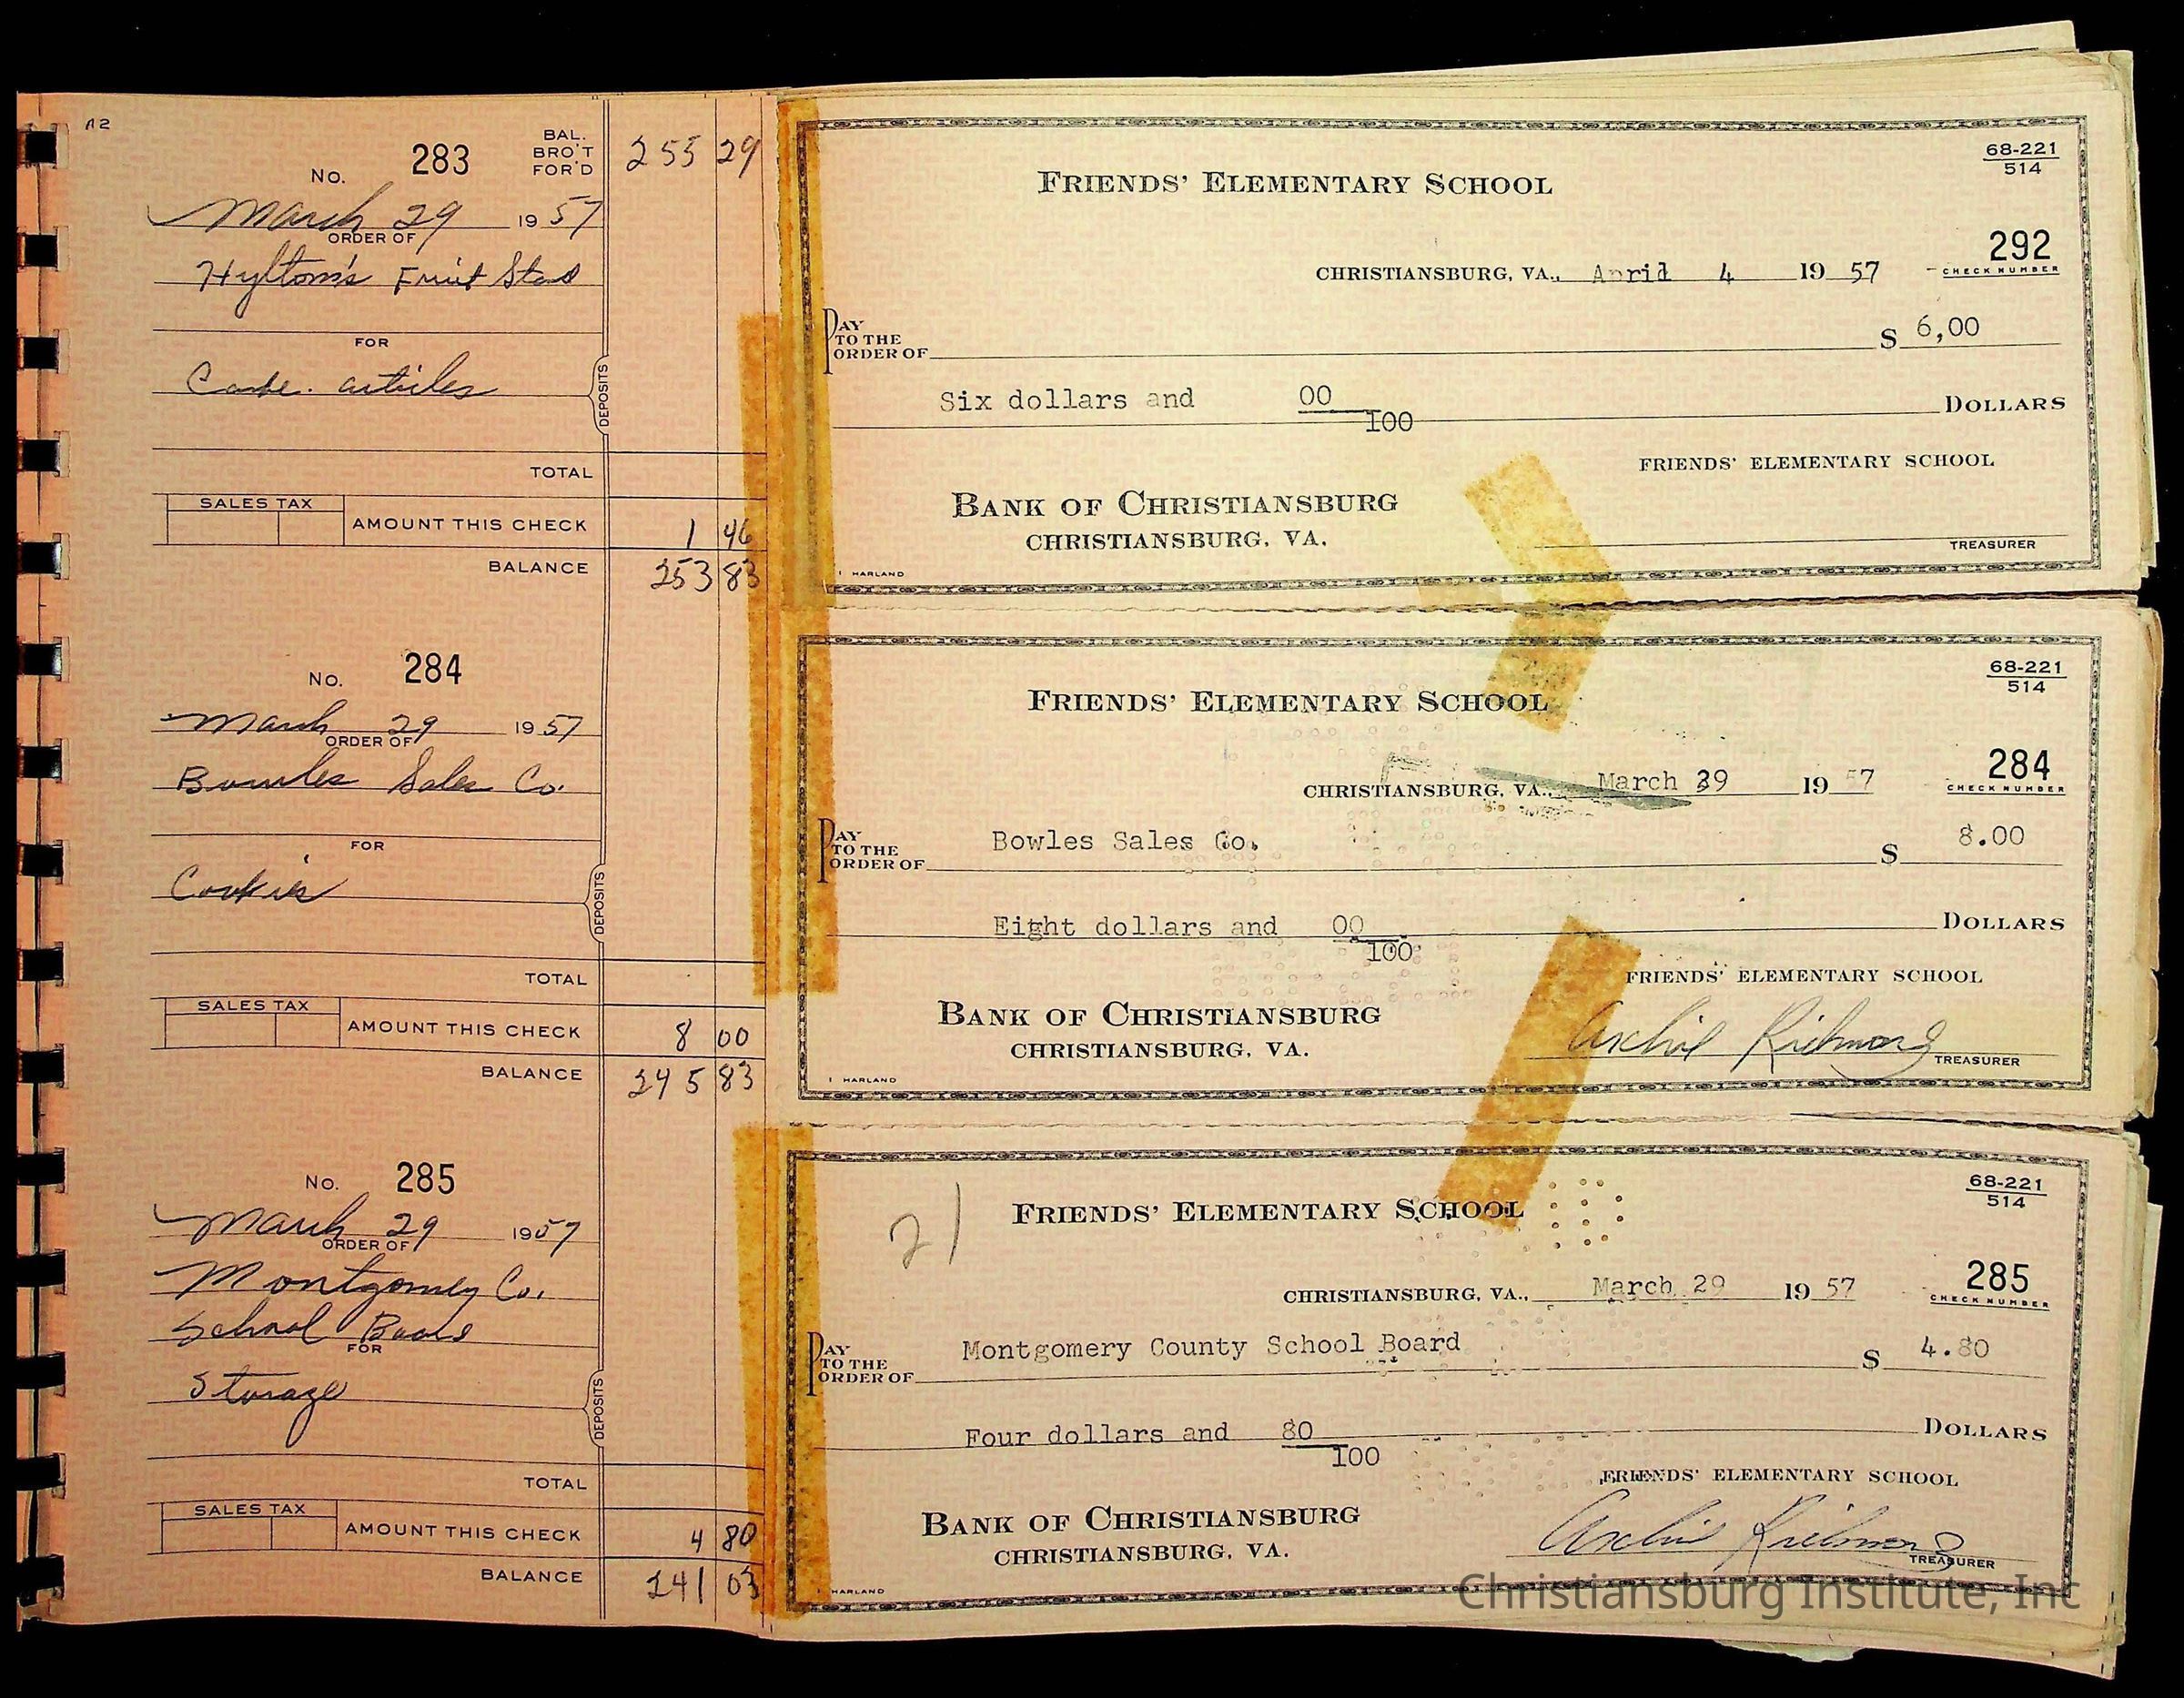 A2
No. 283
BAL.
BRO'T
FOR'D
255 29
March 29 1957
ORDER OF
Hylton's Fruit Stad
FOR
Cafe. articles
DEPOSITS
TOTAL
SALES TAX
AMOUNT THIS CHECK 1 46
BALANCE 253 83
No. 284
March 29 1957
ORDER OF
Bowles Sales Co.
FOR
Cookies
DEPOSITS
TOTAL
SALES TAX
AMOUNT THIS CHECK 8 00
BALANCE 245 83
No. 285
March 29 1957
ORDER OF
Montgomery Co.
School Board
FOR
Storage
DEPOSITS
TOTAL
SALES TAX
AMOUNT THIS CHECK 4 80
BALANCE 241 03
68-221
514
FRIENDS' ELEMENTARY SCHOOL
292
CHECK NUMBER
CHRISTIANSBURG, VA., April 4 19 57
PAY
TO THE
ORDER OF
$ 6,00
Six dollars and 00
100
DOLLARS
FRIENDS' ELEMENTARY SCHOOL
BANK OF CHRISTIANSBURG
CHRISTIANSBURG, VA.
TREASURER
HARLAND
68-221
514
FRIENDS' ELEMENTARY SCHOOL
284
CHECK NUMBER
CHRISTIANSBURG, VA., March 29 19 57
PAY
TO THE
ORDER OF
Bowles Sales Co. $ 8.00
Eight dollars and 00
100
DOLLARS
FRIENDS' ELEMENTARY SCHOOL
BANK OF CHRISTIANSBURG
CHRISTIANSBURG, VA.
Archie Richmond
TREASURER
HARLAND
68-221
514
21
FRIENDS' ELEMENTARY SCHOOL
285
CHECK NUMBER
CHRISTIANSBURG, VA., March 29 19 57
PAY
TO THE
ORDER OF
Montgomery County School Board $ 4.80
Four dollars and 80
100
DOLLARS
FRIENDS' ELEMENTARY SCHOOL
BANK OF CHRISTIANSBURG
CHRISTIANSBURG, VA.
Archie Richmond
TREASURER
HARLAND
Christiansburg Institute, Inc